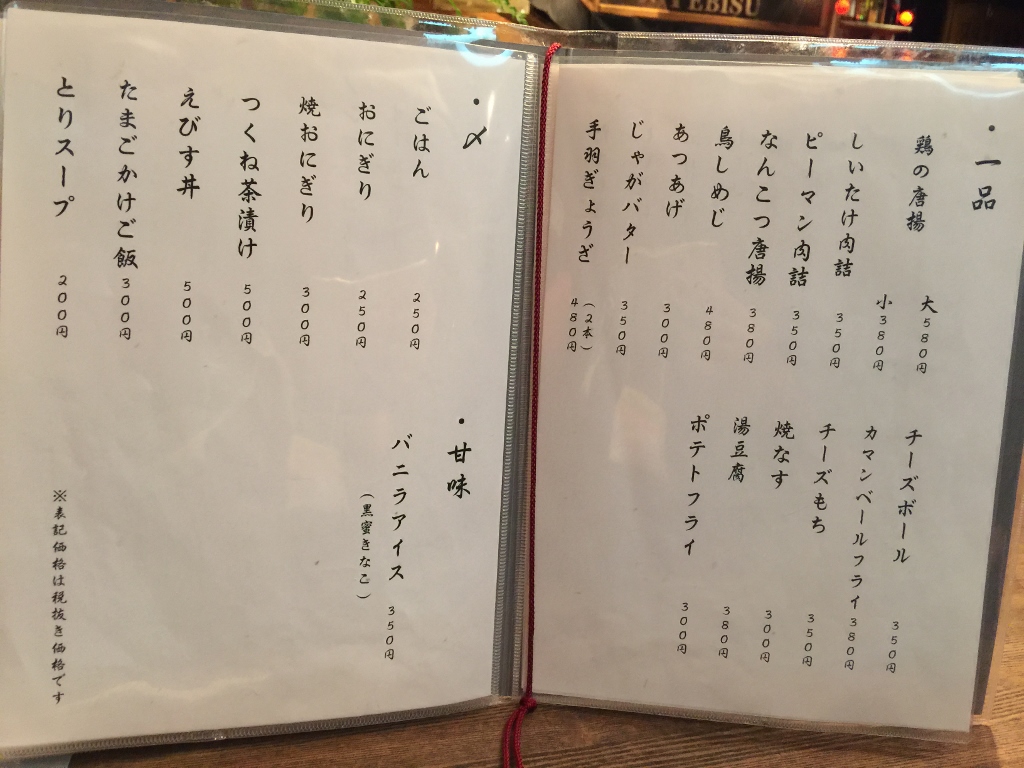 EBISU
・一品
鶏の唐揚 大 580円
小 380円
しいたけ肉詰 350円
ピーマン肉詰 350円
なんこつ唐揚 380円
鳥しめじ 480円
あつあげ 300円
じゃがバター 350円
手羽ぎょうざ (2本) 480円
チーズボール 350円
カマンベールフライ 380円
チーズもち 350円
焼なす 300円
湯豆腐 380円
ポテトフライ 300円
・〆
ごはん 250円
おにぎり 250円
焼おにぎり 300円
つくね茶漬け 500円
えびす丼 500円
たまごかけご飯 300円
とりスープ 200円
・甘味
バニラアイス 350円
(黒蜜きなこ)
※表記価格は税抜き価格です